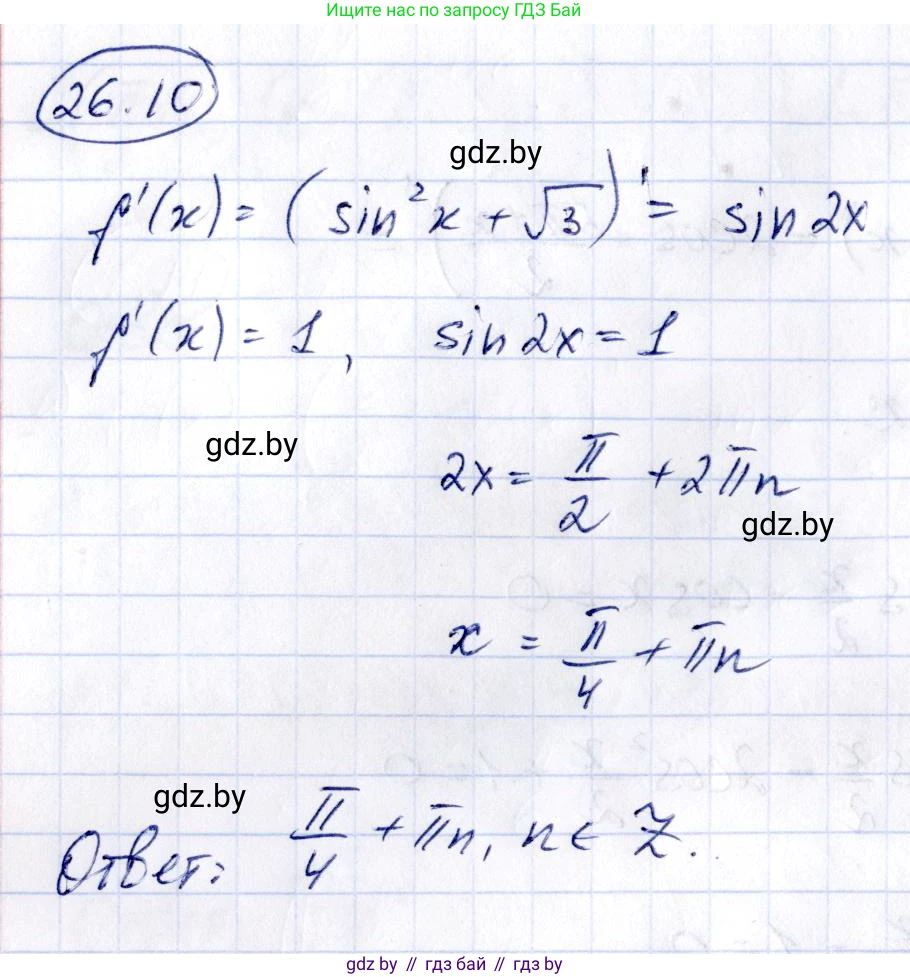 Ищите нас по запросу ГДЗ Бай
26.10
gdz.by
f'(x) = (sin²x + √3)' = sin 2x
f'(x) = 1, sin 2x = 1
gdz.by
2x = π/2 + 2πn
gdz.by
x = π/4 + πn
gdz.by
Ответ: π/4 + πn, n ∈ Z.
gdz.by // гдз бай // gdz by